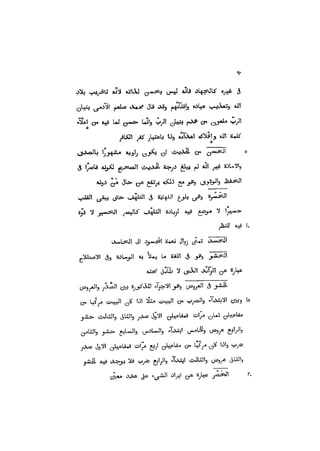 ٩٠
فى غيره كالجهاد فانّه ليس بحسن لذاته لانّه تخريب بلاد
الله وتعذيب عباده وافناؤهم وقد قال محمد صلعم الآدمى بنيان
الربّ ملعون من هدم بنيان الربّ وانّما حسن لما فيه من اعلاء
كلمة الله وإهلاك اعدائه وذا باعتبار كفر الكافر
٥ الحَسَن من الحديث ان يكون راويه مشهورًا بالصدق
والامانة غير انّه لم يبلغ درجة الحديث الصحيح لكونه قاصرًا فى
الحفظ والوثوق وهو مع ذلك يرتفع عن حال مَنْ دونه
الحَسْرة وهى بلوغ النهاية فى التلهّف حتى يبقى القلب
حسيرًا لا موضع فيه لزيادة التلهّف كالبصر الحسير لا قوّة
١٠ فيه للنظر
الحَسَد تمنّى زوال نعمة المحسود الى الحاسد
الحَشْو وهو فى اللغة ما يملأ به الوسادة وفى الاصطلاح
عبارة عن الزائد الذى لا طائل تحته
الحَشْو فى العروض وهو الاجزاء المذكورة بين الصَدْر والعروض
١٥ وبين الابتداء والضرب من البيت مثلًا اذا كان البيت مركّبًا من
مفاعيلن ثمان مرّات فمفاعيلن الاوّل صدر والثانى والثالث حشو
والرابع عروض والخامس ابتداء والسادس والسابع حشو والثامن
ضرب واذا كان مركّبًا من مفاعيلن اربع مرّات فمفاعيلن الاول صدر
والثانى عروض والثالث ابتداء والرابع ضرب فلا يوجد فيه الحشو
٢٠ الحَصْر عبارة عن ايراد الشىء على عدد معيّن